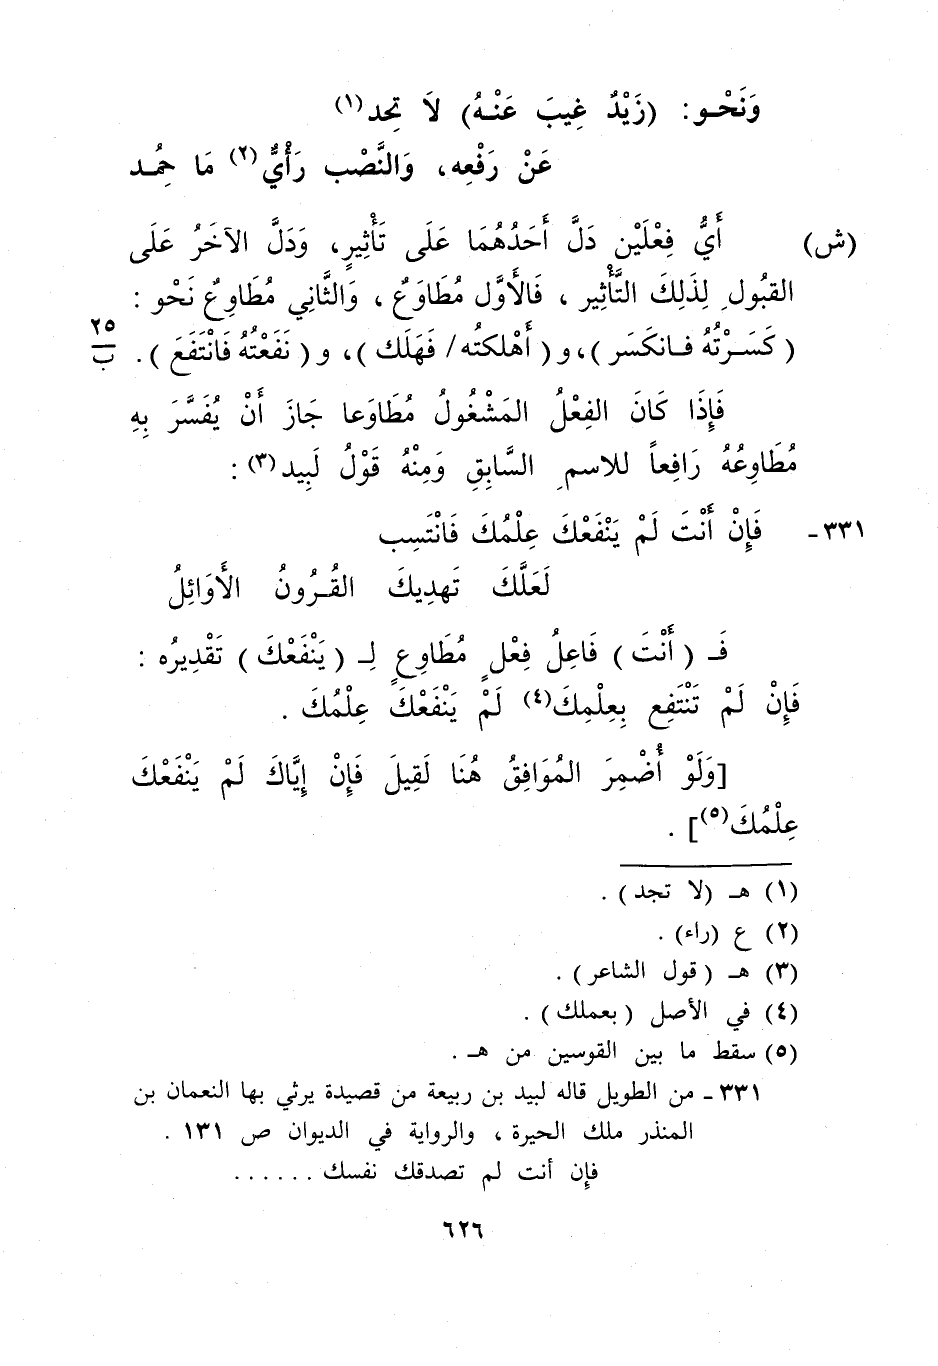 وَنَحْـو: (زَيْدٌ غِيبَ عَنْـهُ) لاَ تَجِد(١)
عَنْ رَفْعِه، وَالنَّصْب رَأْيٌ(٢) مَا حُمِـد
(ش) أَيُّ فِعْلَيْن دَلَّ أَحَدُهُمَا عَلَى تَأْثِيرٍ، وَدَلَّ الآخَرُ عَلَى
القبُولِ لِذَلِكَ التَّأْثِير ، فَالأَوَّل مُطَاوَعٌ ، وَالثَّانِي مُطَاوِعٌ نَحْو :
( كَسَـرْتُهُ فـانكَسَر )،و ( أَهْلكتُه/ فَهَلَك )، و ( نَفَعْتُهُ فَانْتَفَعَ ) . ٢٥
ب
فَإِذَا كَانَ الفِعْلُ المَشْغُولُ مُطَاوَعا جَازَ أَنْ يُفَسَّرَ بِهِ
مُطَاوِعُهُ رَافِعاً للاسمِ السَّابِقِ وَمِنْهُ قَوْلُ لَبِيد(٣) :
٣٣١ - فَإِنْ أَنْتَ لَمْ يَنْفَعْكَ عِلْمُكَ فَانْتَسِب
لَعَلَّكَ تَهدِيكَ القُـرُونُ الأَوَائِلُ
فَـ ( أَنْتَ ) فَاعِلُ فِعْلٍ مُطَاوِعٍ لِـ ( يَنْفَعْكَ ) تَقْدِيرُه :
فَإِنْ لَمْ تَنْتَفِع بِعِلْمِكَ(٤) لَمْ يَنْفَعْكَ عِلْمُكَ .
[وَلَوْ أُضْمِرَ المُوَافِقُ هُنَا لَقِيلَ فَإِنْ إِيَّاكَ لَمْ يَنْفَعْكَ
عِلْمُكَ(٥)] .
(١) هـ (لا تجد) .
(٢) ع (راء) .
(٣) هـ ( قول الشاعر ) .
(٤) في الأصل ( بعملك ) .
(٥) سقط ما بين القوسين من هـ .
٣٣١ - من الطويل قاله لبيد بن ربيعة من قصيدة يرثي بها النعمان بن
المنذر ملك الحيرة ، والرواية في الديوان ص ١٣١ .
فإن أنت لم تصدقك نفسك . . . . . .
٦٢٦